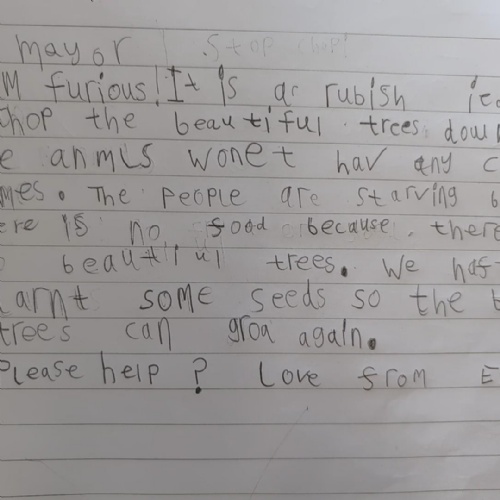 mayor Stop
furious! It is a rubish
chop the beautiful trees down
anmls wonet hav any
The people are starving
is no food because there
beautiful trees. We haf
some seeds so the
trees can groa again.
Please help? Love from E